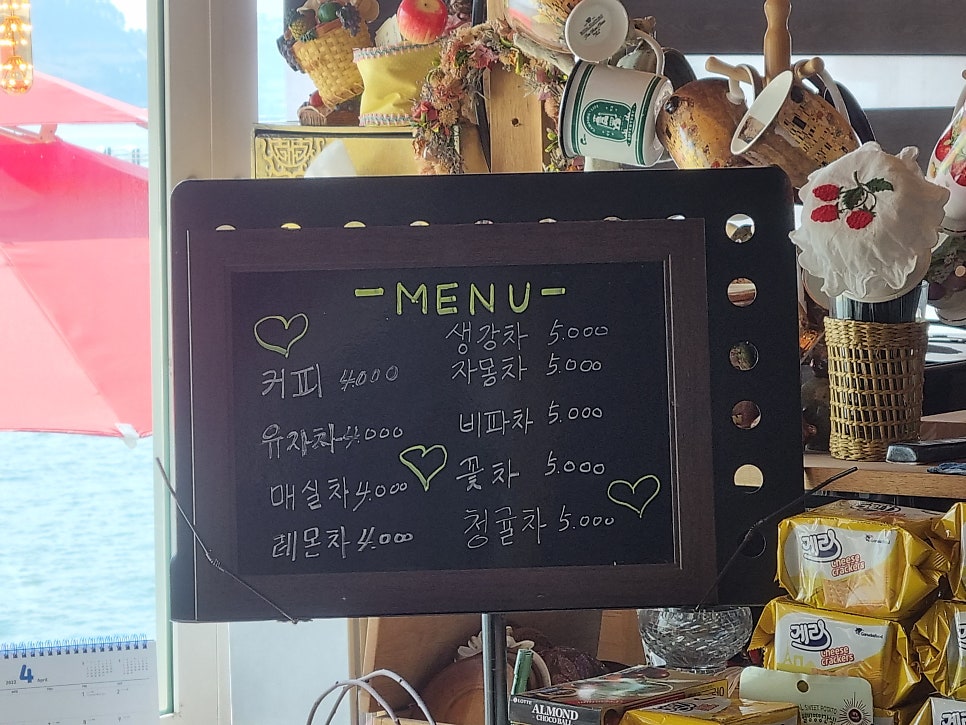 -MENU-
커피 4.000
유자차 4.000
매실차 4.000
레몬차 4.000
생강차 5.000
자몽차 5.000
비파차 5.000
꽃차 5.000
청귤차 5.000
4
April
계란
cheese
crackers
계란
cheese
crackers
LOTTE
ALMOND
CHOCO BALL
SWEET POTATO